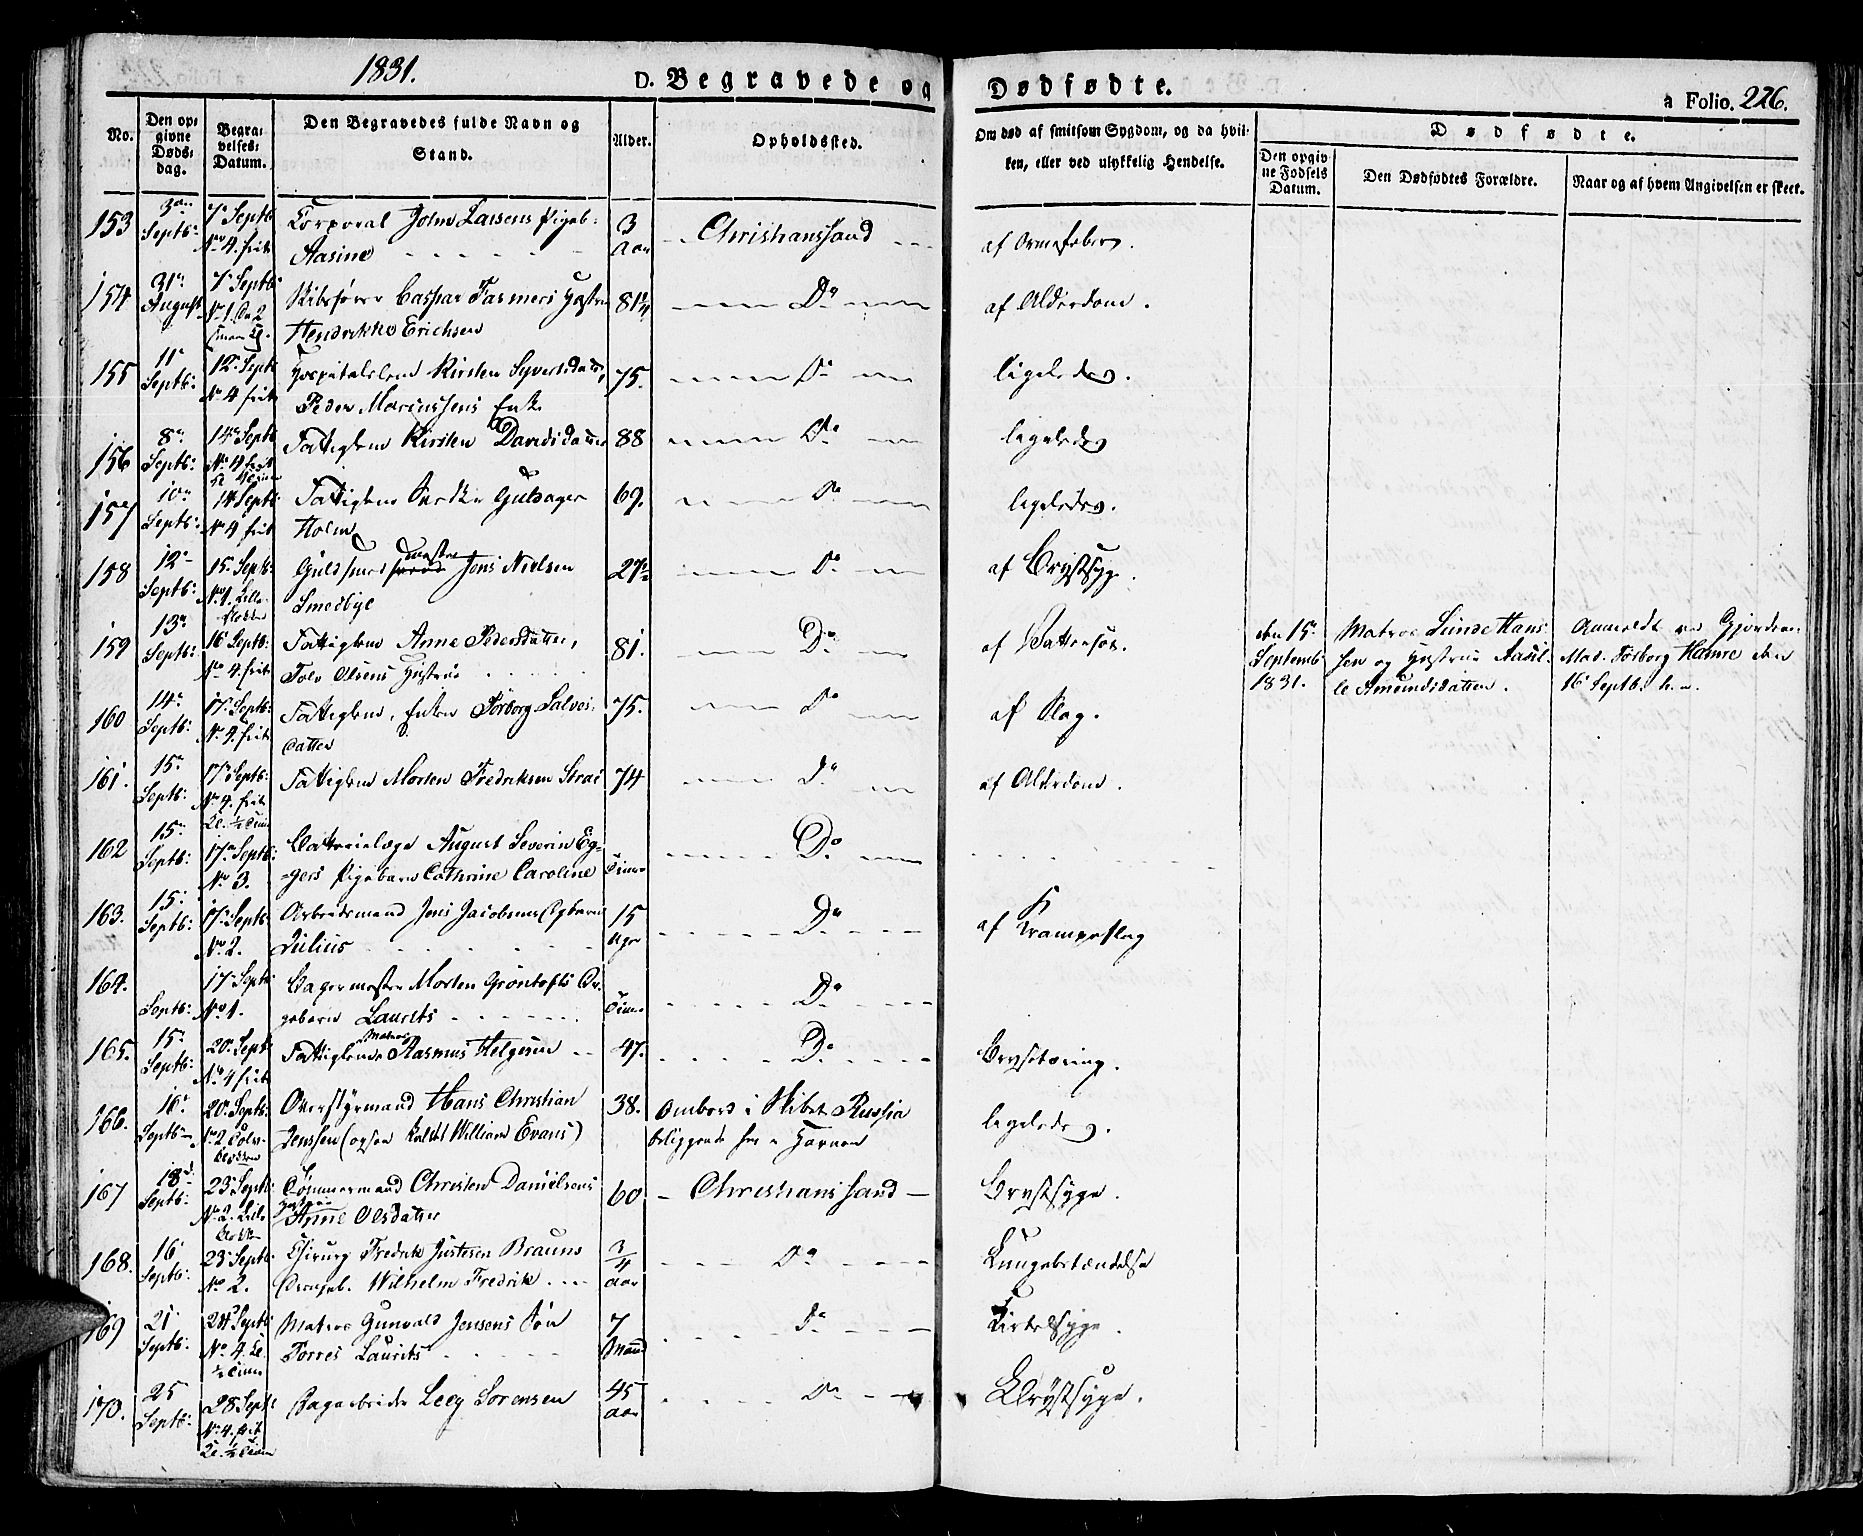 1831.
D. Begravede og Dødfødte.
a Folio. 226.
No.
Den opgivne Dødsdag.
Begravelses Datum.
Den Begravedes fulde Navn og Stand.
Alder.
Opholdssted.
Om død af smitsom Sygdom, og da hvilken, eller ved ulykkelig Hendelse.
Dødfødte.
Den opgivne Fødsels Datum.
Den Dødfødtes Forældre.
Naar og af hvem Angivelsen er skeet.
153 3die Septb: 7de Septb No 4. frit Corporal John Larsens Pigeb: 3 Christianssand
Aasine Aar
154 31te August 7de Septb No 1. Caspar Farmers Hustru 81 Do af Alderdom.
Hendrikke Erichsen
155 11te Septb: 12te Septb No 4 frit Hospitalslem Kirsten Syvertsdatter, 75. Do ligeledes.
Peder Marcussens Enke
156 8de Septb: 14de Septb No 4 Fattiglem Kirsten Davidsdatter 88 Do ligeledes
157 10de Septb: 14 Septb No 4 frit Fattiglem Guldager 69. Do ligeledes.
Holm
158 12te Septb: 15 Septb: No 1. Lille Klokker Guldsmed Jens Nielsen 27 Do af Brystsyge.
Smedbye
159 13de Septb: 16 Septb: No 4. frit Fattiglem Anne Pedersdatter, 81. Do af Vattersot.
Olsens Hustrue
den 15de Septemb 1831.
Matros Sunde Hansen og Hustrue Aasille Amundsdatter.
Anmeldt ved Gjordem: Mad. Tolborg Hamre den 16 Septb:
160 14de Septb: 17de Septb: No 4. frit Fattiglem, Enken Torborg Salves- 75. Do af Slag.
datter
161. 15de Septb: 17de Septb: No 4. frit Kl. ½ Time Fattiglem Morten Fredriksen Strai 74 Do af Alderdom.
162 15de Septb: 17de Septb: No 3. August Severin Eg-
gers Pigebarn Cathrine Caroline Time Do
163. 15de Septb: 17de Septb: No 2. Arbeidsmand Jens Jacobsens 15 Do af Krampeslag
Julius Uger
164. Septb: 17de Septb No 1. Bagermester Morten Grøntofts Dr. Time Do
gebarn Laurits
165. 15de Septb: 20de Septb No 4 frit Fattiglem Matros Rasmus Helgesen 47. Do Brysttæring.
166. 16de Septb: 20de Septb: No 2 Overstyrmand Hans Christian 38. Ombord i Skibet Russia ligeledes.
Jenssen (ogsaa kaldet William Evans) beliggende her i Havnen
167 18de Septb: 23de Septb: No 2. Lille Klokker Tømmermand Christen Danielsens 60 Christianssand Brystsyge.
Hustrue Anne Olsdatter
168. 16 Septb: 23de Septb: No 2. Chirurg Fredrik Justesen Brauns ¾ Aar Do Lungebetændelse
Drengeb. Wilhelm Fredrik
169 21de Septb: 24de Septb: No 4. Kl. ½ Time Matros Gunvald Jensens Søn 7 Do Kirtelsyge.
Torres Laurits Maaned
170. 25 Septb: 28 Septb: No 4. frit Kl. ½ Time Dagarbeider Leeg Sørensen 45 Aar Do Brystsyge.